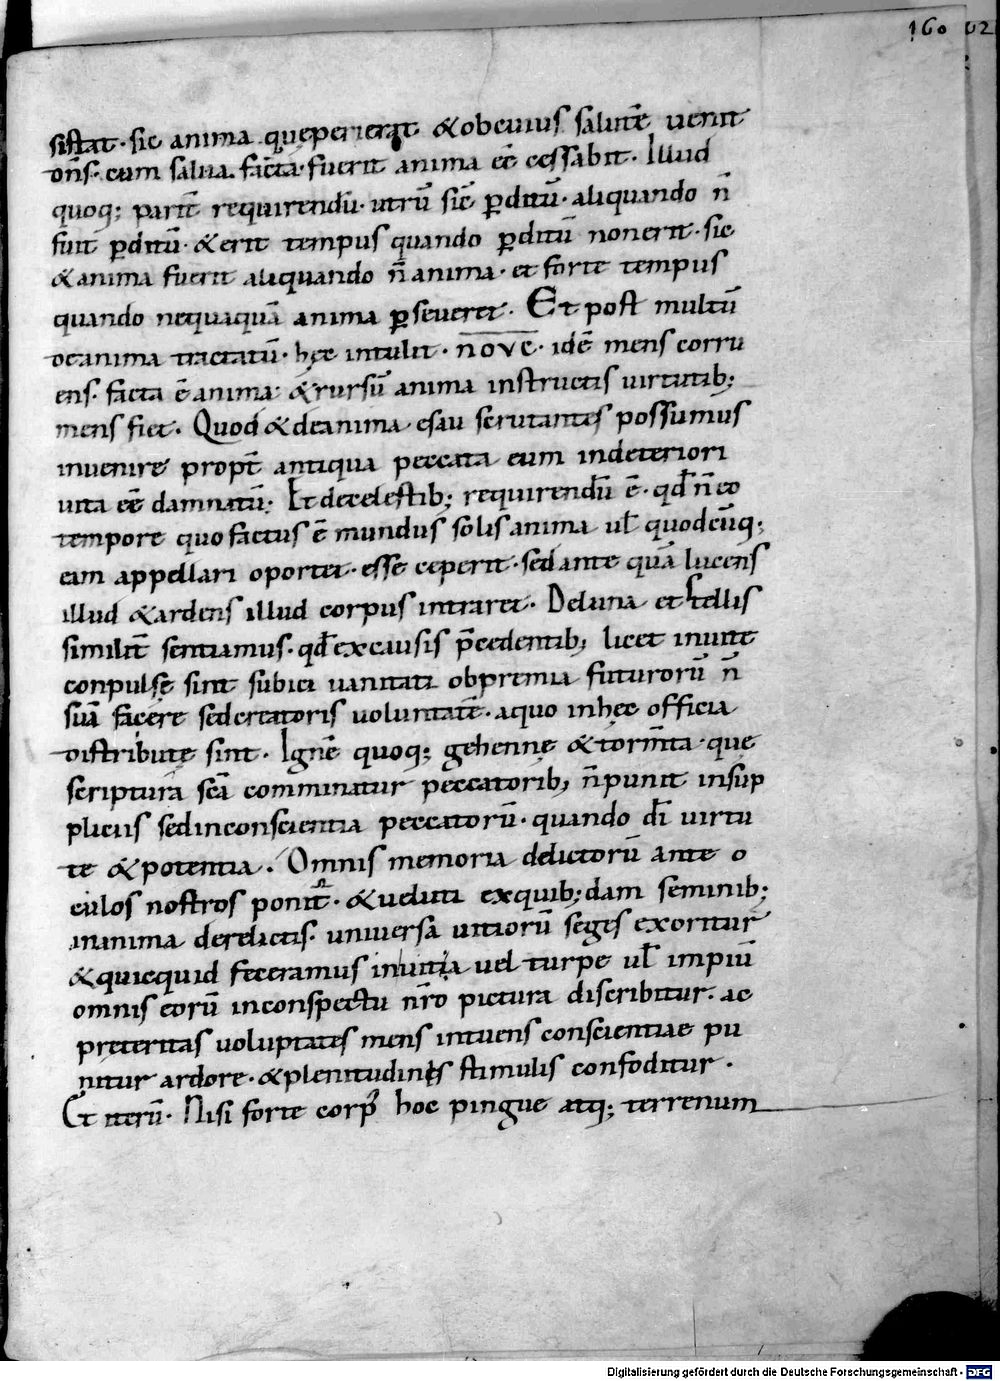 160 02
sistat · sic anima quęperierat &obcuius salutē uenit
dn̄s · cum salua facta · fuerit anima eē cessabit · Illud
quoq; parit̄ requirendū · utrū sic ꝑditū · aliquando n̄
fuit ꝑditū · &erit tempus quando ꝑditū nonerit · sic
&anima fuerit aliquando n̄ anima · et forte tempus
quando nequaquā anima ꝑseueret · Et post multū
deanima tractatū · hęc intulit · ΝΟΥC · idē mens corru
ens · facta ē anima · &rursū anima instructis uirtutib;
mens fiet · Quod &deanima esau scrutantes possumus
inuenire propt̄ antiqua peccata eum indeteriori
uita eē damnatū; Et decelestib; requirendū ē · qđ n̄ eo
tempore quo factus ē mundus solis anima ul̄ quodcūq;
eam appellari oportet · esse ceperit · sed ante quā lucens
illud &ardens illud corpus intraret · Deluna et stellis
similit̄ sentiamus · qđ excausis p̄cedentib; licet inuite
conpulsę sint subici uanitati obpremia futurorū n̄
suā facere sedcreatoris uoluntatē · aquo inhęc officia
distributę sint · Ignē quoq; gehennę &torm̄ta · que
scriptura scā comminatur peccatorib; n̄ punit insup
pliciis sedinconscientia peccatorū · quando dī uirtu
te &potentia · Omnis memoria delictorū ante o
culos nostros ponit̄ · &ueluti exquib;dam seminib;
inanima derelictis · uniuersa uitiorū seges exoritur
&quicquid feceramus inuita uel turpe ul̄ impiū
omnis eorū inconspectu nr̄o pictura discribitur · ac
preteritas uoluptates mens intuens conscientiae pu
nitur ardore · &plenitudinis stimulis confoditur ·
Et iterū · Nisi forte corp̄ hoc pingue atq; terrenum
Digitalisierung gefördert durch die Deutsche Forschungsgemeinschaft · DFG